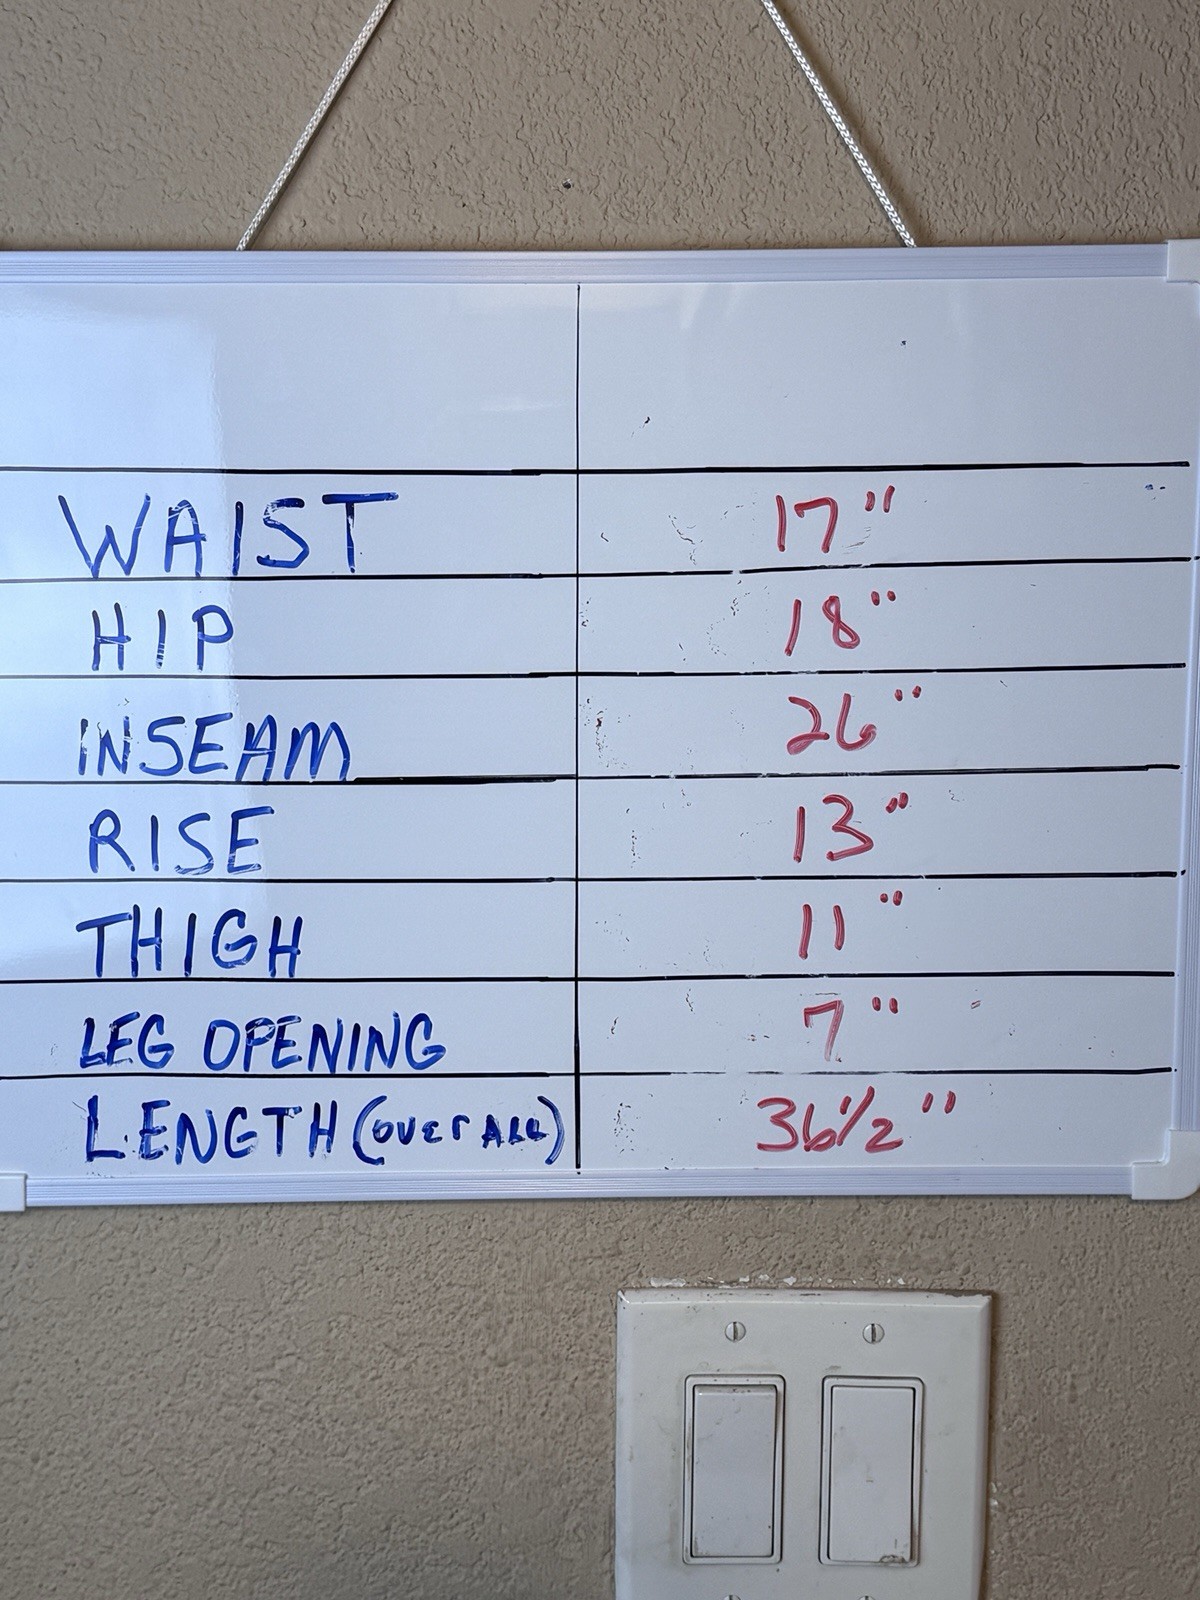 WAIST 17"
HIP 18"
INSEAM 26"
RISE 13"
THIGH 11"
LEG OPENING 7"
LENGTH (OVER ALL) 36 1/2"